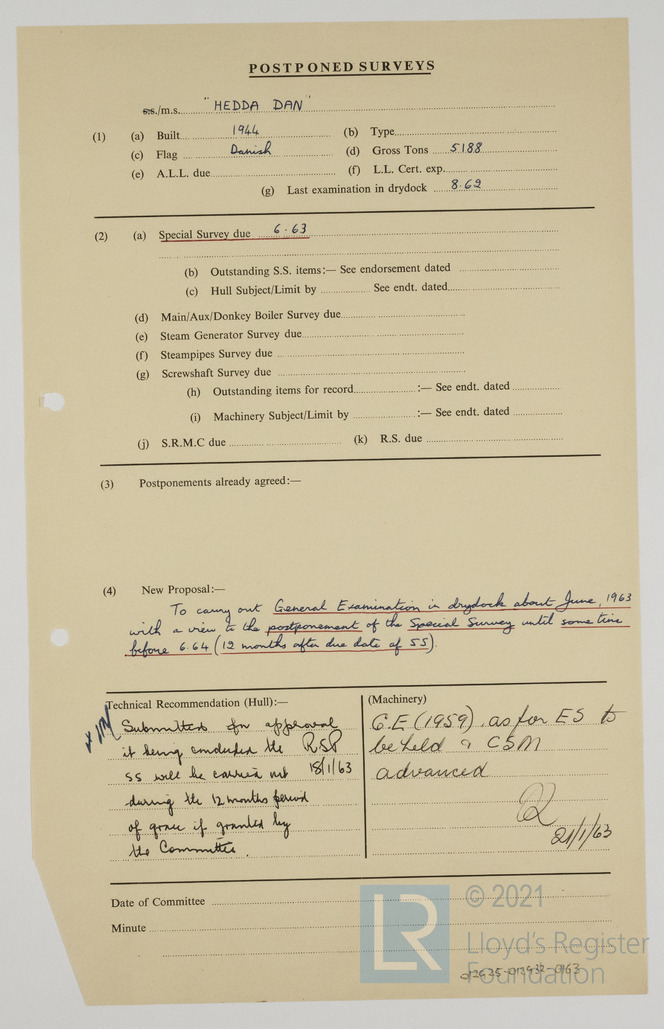 POSTPONED SURVEYS
s.s./m.s. "HEDDA DAN"
(1) (a) Built 1944 (b) Type
(c) Flag Danish (d) Gross Tons 5188
(e) A.L.L. due (f) L.L. Cert. exp.
(g) Last examination in drydock 8.62
(2) (a) Special Survey due 6.63
(b) Outstanding S.S. items:— See endorsement dated
(c) Hull Subject/Limit by See endt. dated
(d) Main/Aux/Donkey Boiler Survey due
(e) Steam Generator Survey due
(f) Steampipes Survey due
(g) Screwshaft Survey due
(h) Outstanding items for record :— See endt. dated
(i) Machinery Subject/Limit by :— See endt. dated
(j) S.R.M.C due (k) R.S. due
(3) Postponements already agreed:—
(4) New Proposal:—
To carry out General Examination in drydock about June, 1963
with a view to the postponement of the Special Survey until some time
before 6.64 (12 months after due date of SS).
Technical Recommendation (Hull):—
Submitted for approval
it being concluded the RSP
SS will be carried out 18/1/63
during the 12 months period
of grace if granted by
the Committee.
(Machinery)
G.E (1959), as for ES to
be held & CSM
advanced
21/1/63
Date of Committee
Minute
LR © 2021
Lloyd's Register
Foundation
012635-013932-0163